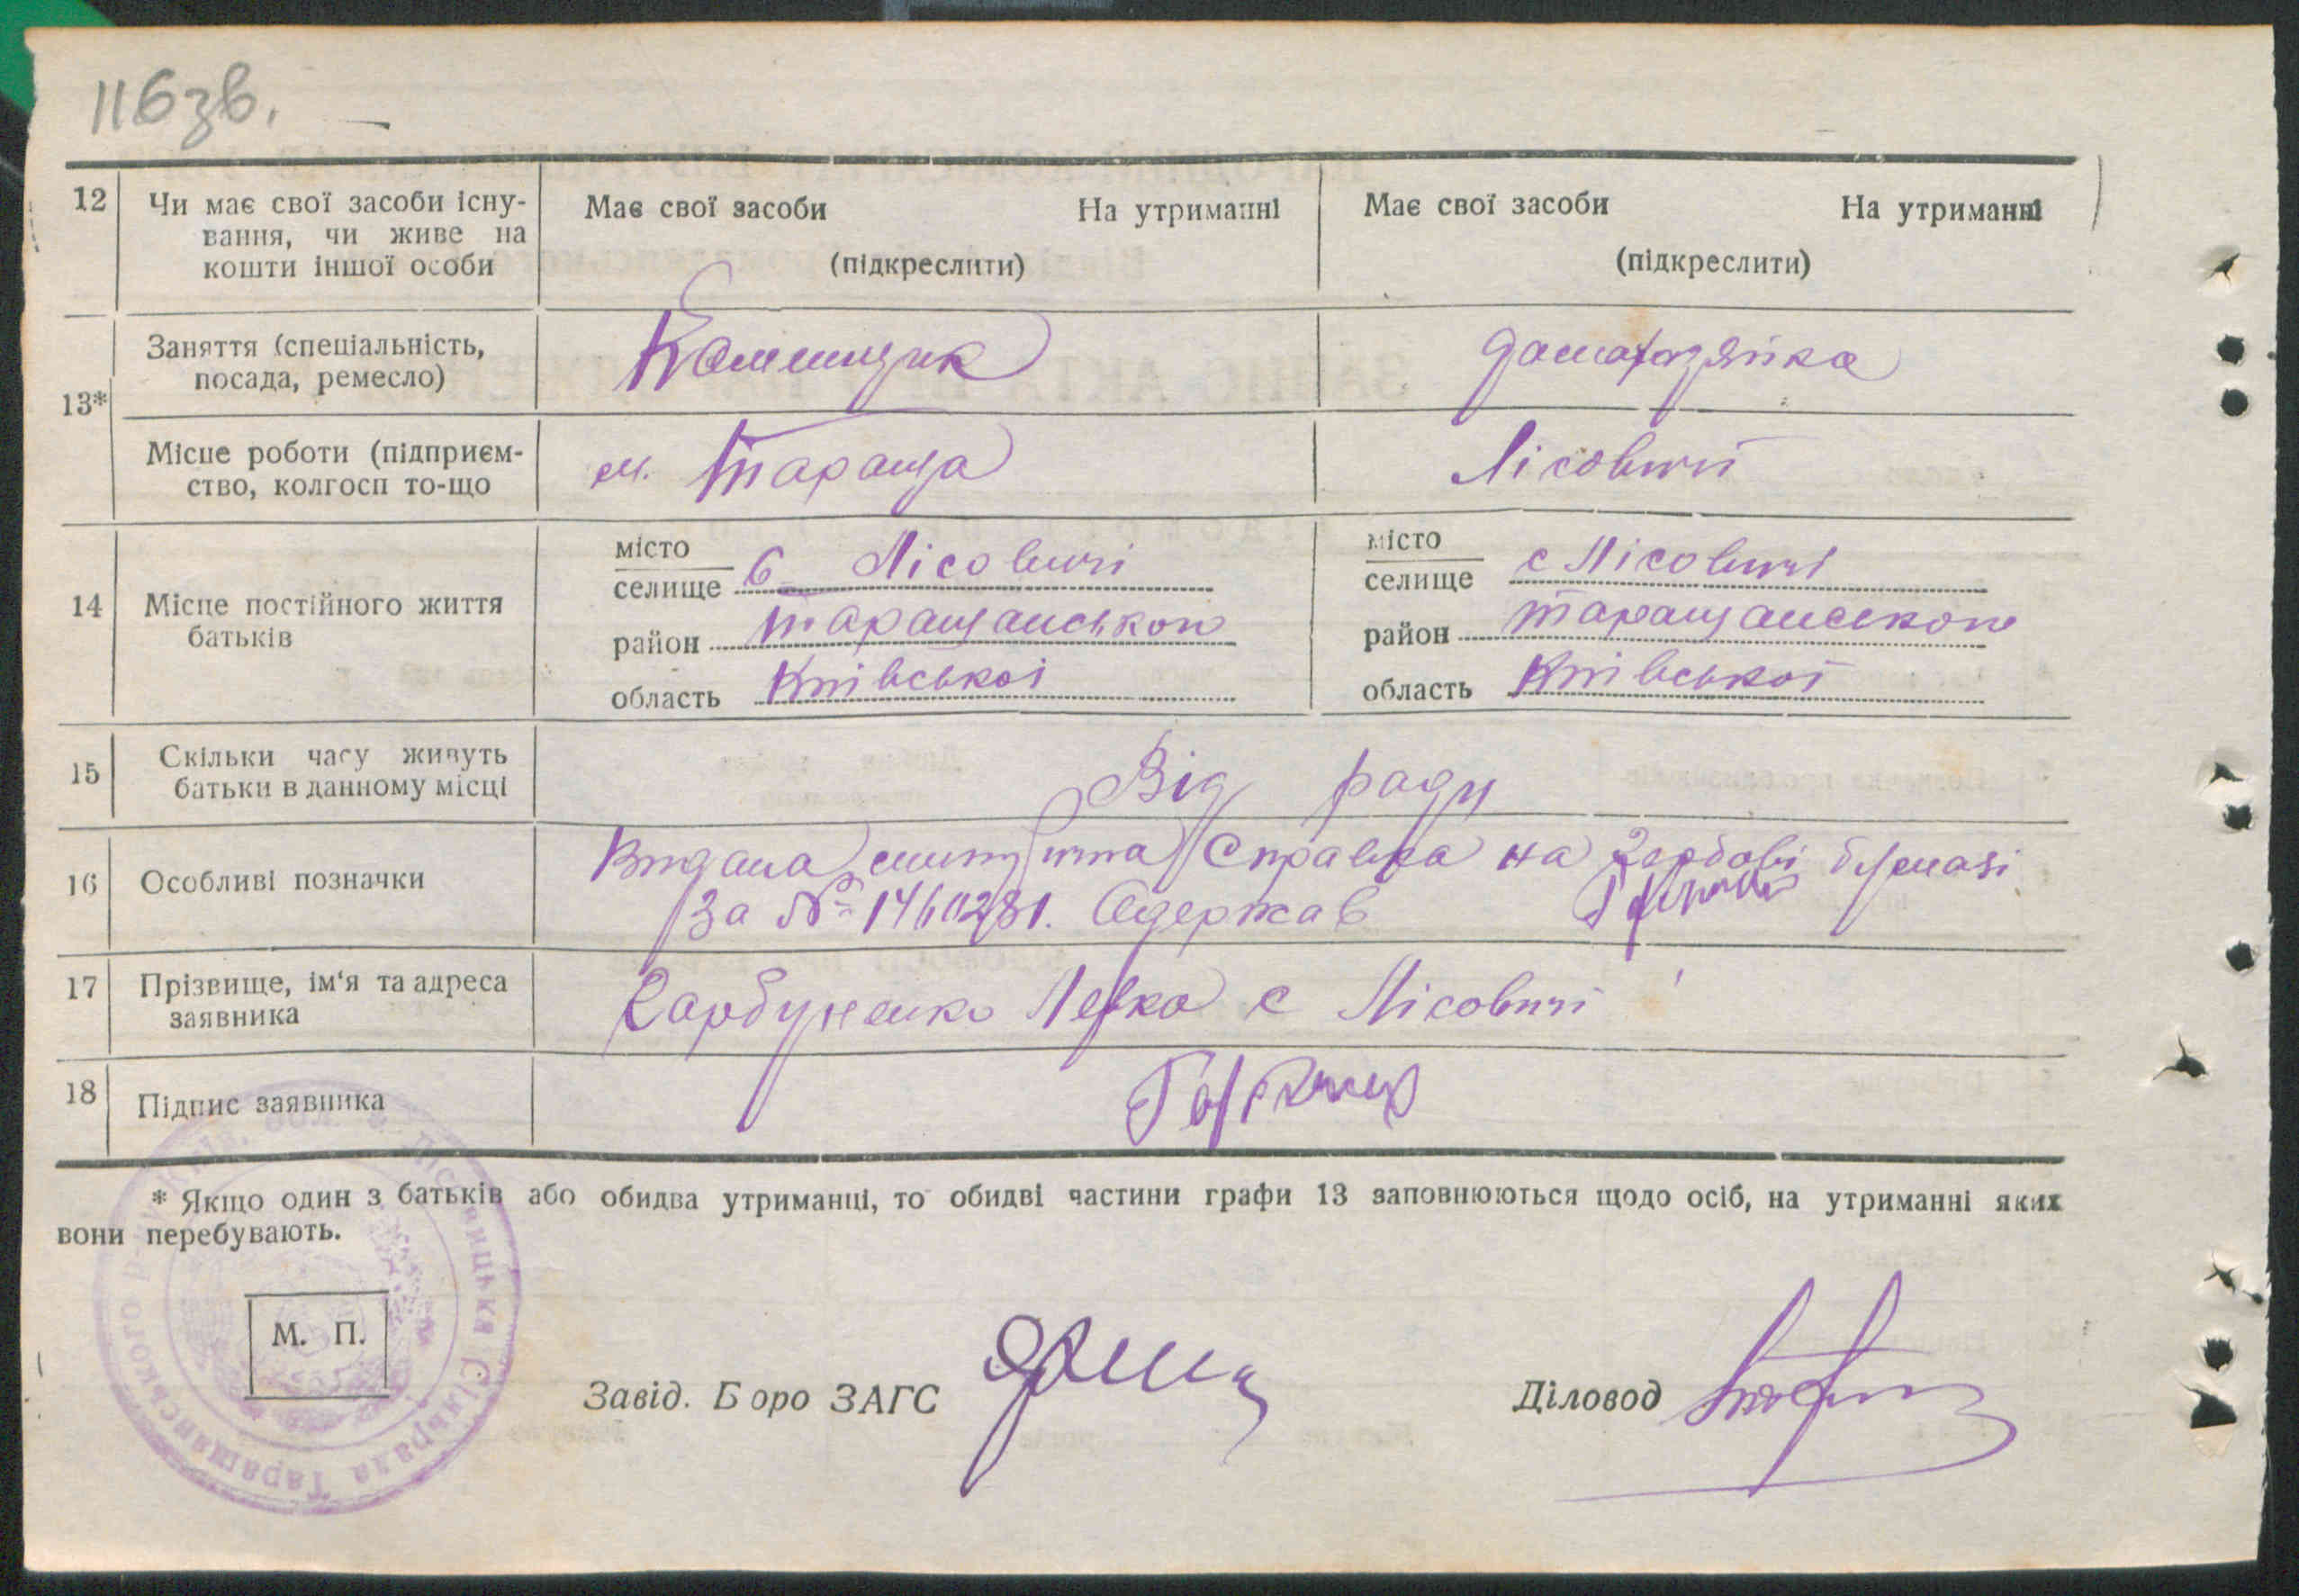 116зв.
12 Чи має свої засоби існу- Має свої засоби На утриманні Має свої засоби На утриманні
вання, чи живе на
кошти іншої особи (підкреслити) (підкреслити)
13* Заняття (спеціальність, домахазяйка
посада, ремесло)
Місце роботи (підприєм- м. Тараща Лісовичі
ство, колгосп то-що
14 Місце постійного життя батьків
місто
селище с Лісовичі
район таращанського
область Київської
місто
селище с Лісовичі
район таращанського
область Київської
15 Скільки часу живуть Від роду
батьки в данному місці
16 Особливі позначки Видана Справка на гербові бумазі
За № 1460281. Одержав
17 Прізвище, ім'я та адреса Гарбузенко Левко с Лісовичі
заявника
18 Підпис заявника
* Якщо один з батьків або обидва утриманці, то обидві частини графи 13 заповнюються щодо осіб, на утриманні яких
вони перебувають.
М. П.
Завід. Бюро ЗАГС Діловод
Сільрада Таращанського